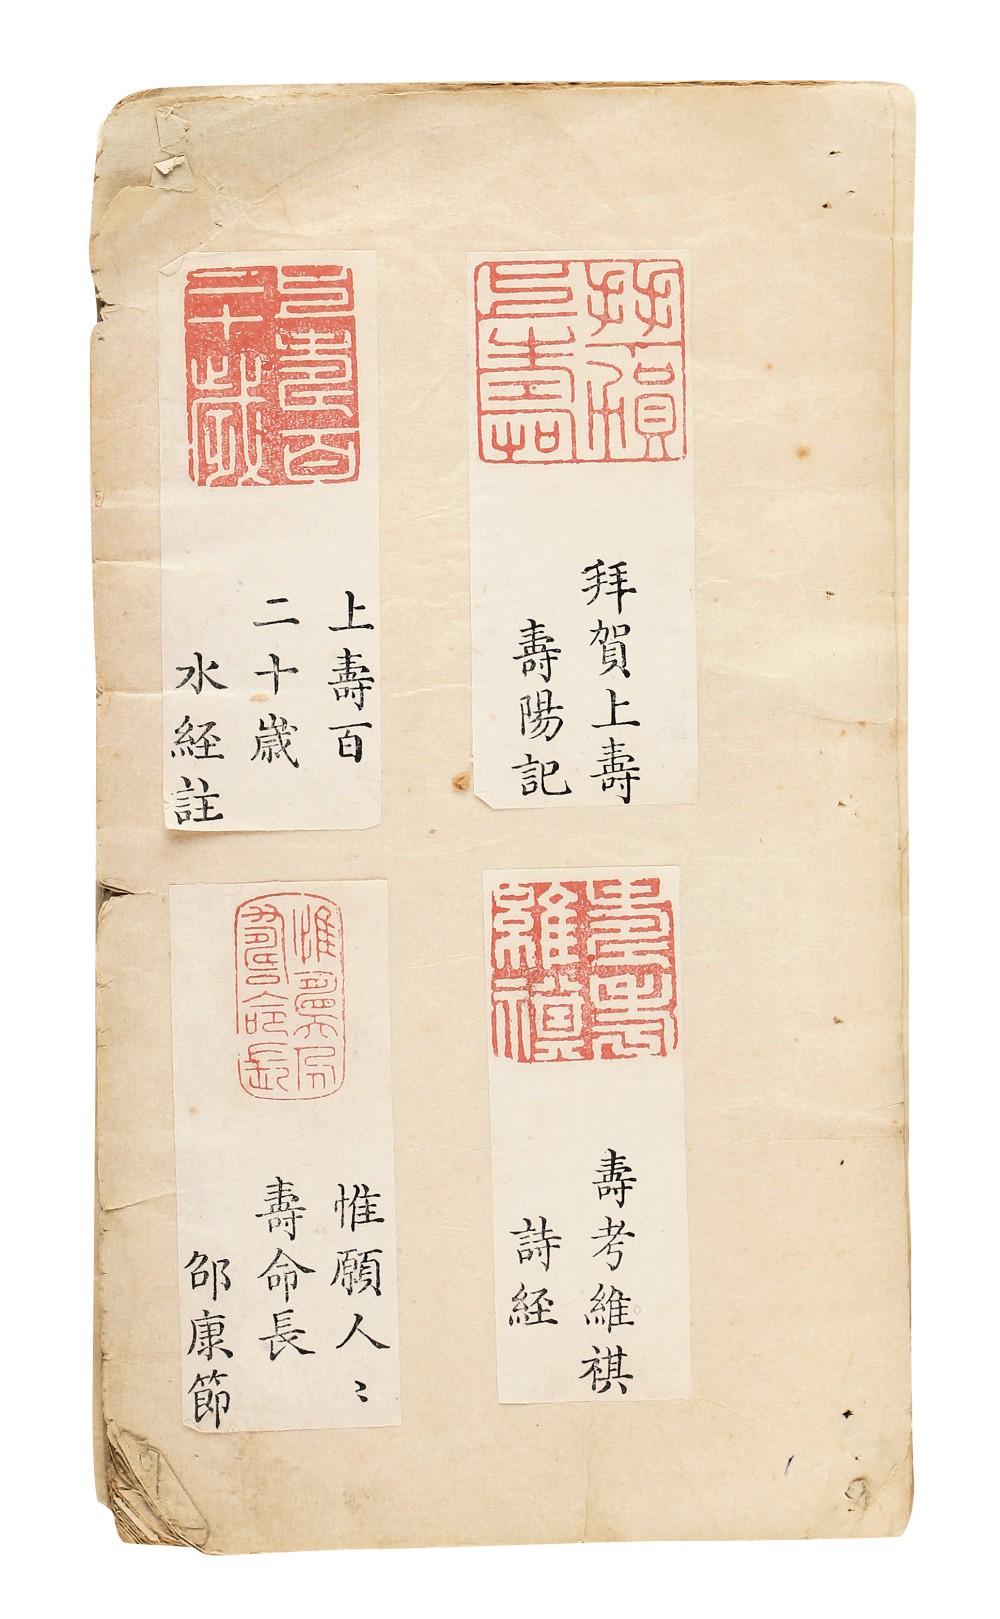 拜賀上壽
拜賀上壽
壽陽記
上壽百二十歲
上壽百
二十歳
水経註
壽考維祺
壽考維祺
詩経
惟願人〻壽命長
惟願人〻
壽命長
邵康節